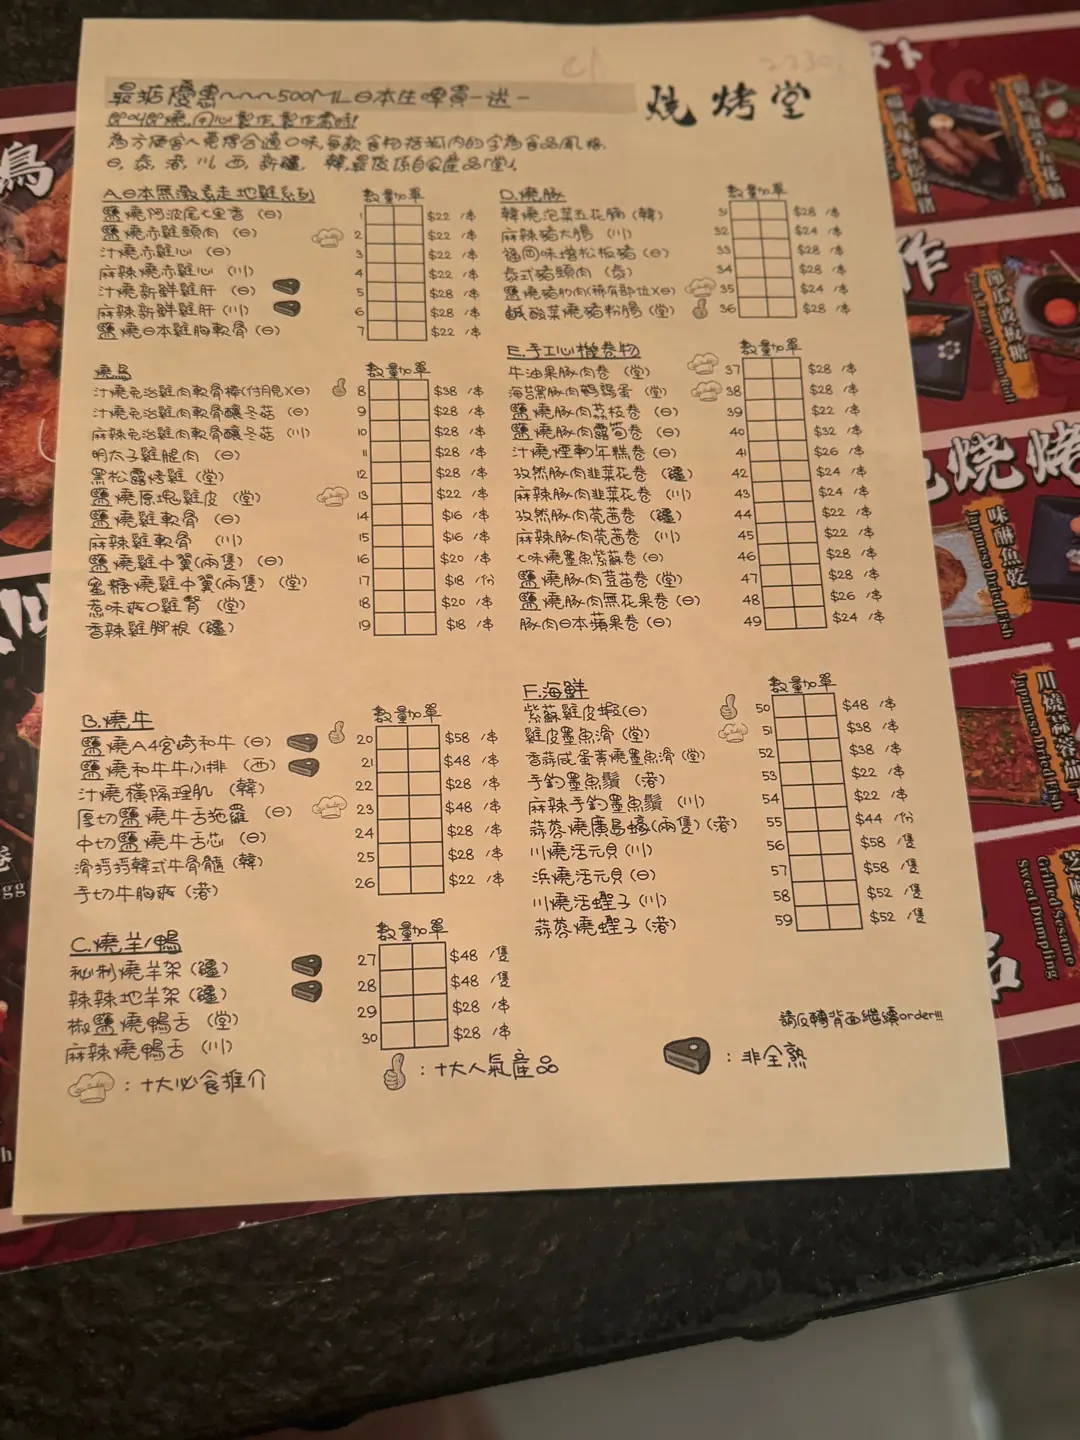 最抵優惠~~~500ML日本生啤買一送一
燒烤堂
即叫即燒,用心製作,製作需時!
為方便客人選擇合適口味,每款食物括弧內的字為食品風格.
日, 泰, 港, 川, 西, 新疆, 韓,最後係自家產品"堂".
A.日本無激素走地雞系列
數量加單
鹽燒阿波尾七里香 (日) 1 $22 /串
鹽燒赤雞頸肉 (日) 2 $22 /串
汁燒赤雞心 (日) 3 $22 /串
麻辣燒赤雞心 (川) 4 $22 /串
汁燒新鮮雞肝 (日) 5 $28 /串
麻辣新鮮雞肝 (川) 6 $28 /串
鹽燒日本雞胸軟骨 (日) 7 $22 /串
燒鳥
數量加單
汁燒免治雞肉軟骨棒(付月見)(日) 8 $38 /串
汁燒免治雞肉軟骨釀冬菇 (日) 9 $28 /串
麻辣免治雞肉軟骨釀冬菇 (川) 10 $28 /串
明太子雞腿肉 (日) 11 $28 /串
黑松露烤雞 (堂) 12 $28 /串
鹽燒原塊雞皮 (堂) 13 $22 /串
鹽燒雞軟骨 (日) 14 $16 /串
麻辣雞軟骨 (川) 15 $16 /串
鹽燒雞中翼(兩隻) (日) 16 $20 /串
蜜糖燒雞中翼(兩隻) (堂) 17 $18 /份
惹味爽口雞腎 (堂) 18 $20 /串
香辣雞腳根 (疆) 19 $18 /串
B.燒牛
數量加單
鹽燒A4宮崎和牛 (日) 20 $58 /串
鹽燒和牛牛小排 (西) 21 $48 /串
汁燒橫隔理肌 (韓) 22 $28 /串
厚切鹽燒牛舌拖羅 (日) 23 $48 /串
中切鹽燒牛舌芯 (日) 24 $28 /串
滑捋捋韓式牛骨髓 (韓) 25 $28 /串
手切牛胸爽 (港) 26 $22 /串
C.燒羊/鴨
數量加單
秘制燒羊架 (疆) 27 $48 /隻
辣辣地羊架 (疆) 28 $48 /隻
椒鹽燒鴨舌 (堂) 29 $28 /串
麻辣燒鴨舌 (川) 30 $28 /串
D.燒豚
數量加單
韓燒泡菜五花腩 (韓) 31 $28 /串
麻辣豬大腸 (川) 32 $24 /串
福岡味增松板豬 (日) 33 $28 /串
泰式豬頸肉 (泰) 34 $28 /串
鹽燒豬肋肉(稀有部位)(日) 35 $24 /串
鹹酸菜燒豬粉腸 (堂) 36 $28 /串
E.手工心機卷物
數量加單
牛油果豚肉卷 (堂) 37 $28 /串
海苔黑豚肉鵪鶉蛋 (堂) 38 $28 /串
鹽燒豚肉荔枝卷 (日) 39 $22 /串
鹽燒豚肉露筍卷 (日) 40 $32 /串
汁燒煙靭年糕卷 (日) 41 $26 /串
孜然豚肉韭菜花卷 (疆) 42 $24 /串
麻辣豚肉韭菜花卷 (川) 43 $24 /串
孜然豚肉芫茜卷 (疆) 44 $22 /串
麻辣豚肉芫茜卷 (川) 45 $22 /串
七味燒墨魚紫蘇卷 (日) 46 $28 /串
鹽燒豚肉荳苗卷 (堂) 47 $28 /串
鹽燒豚肉無花果卷 (日) 48 $26 /串
豚肉日本蘋果卷 (日) 49 $24 /串
F.海鮮
數量加單
紫蘇雞皮蝦(日) 50 $48 /串
雞皮墨魚滑 (堂) 51 $38 /串
香蒜咸蛋黃燒墨魚滑 (堂) 52 $38 /串
手釣墨魚鬚 (港) 53 $22 /串
麻辣手釣墨魚鬚 (川) 54 $22 /串
蒜蓉燒廣島蠔(兩隻) (港) 55 $44 /份
川燒活元貝 (川) 56 $58 /隻
浜燒活元貝 (日) 57 $58 /隻
川燒活蟶子 (川) 58 $52 /隻
蒜蓉燒蟶子 (港) 59 $52 /隻
請反轉背面繼續order!!!
: 十大必食推介
: 十大人氣產品
: 非全熟
鳥
スト
作
燒烤
味醂魚乾
Japanese Dried Fish
Japanese Dried Fish
Grilled Sesame
Sweet Dumpling